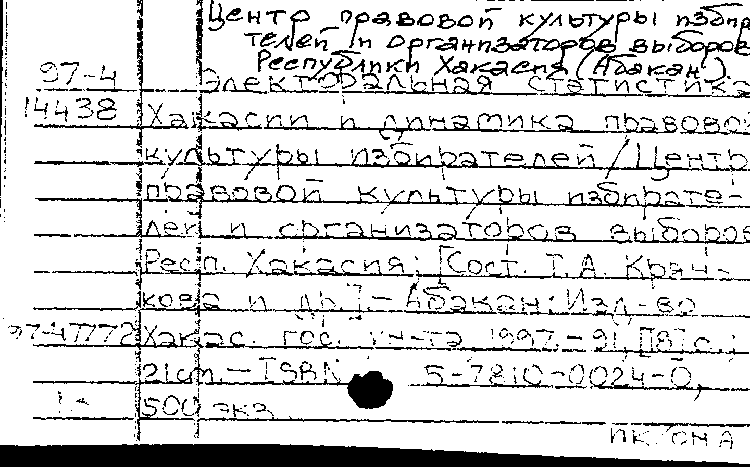 Центр правовой культуры избир
телей и организаторов выборов
Республики Хакасия (Абакан)
97-4 Электоральная статистика
14438 Хакасии и динамика правово
культуры избирателей / Центр
правовой культуры избирате-
лей и организаторов выборов
Респ. Хакасия; [Сост. Т.А. Кряч-
кова и др.]. - Абакан: Изд-во
97-47772 Хакас. гос. ун-та, 1997. - 91, [8] с.;
21 см. - ISBN 5-7810-0024-0,
500 экз.